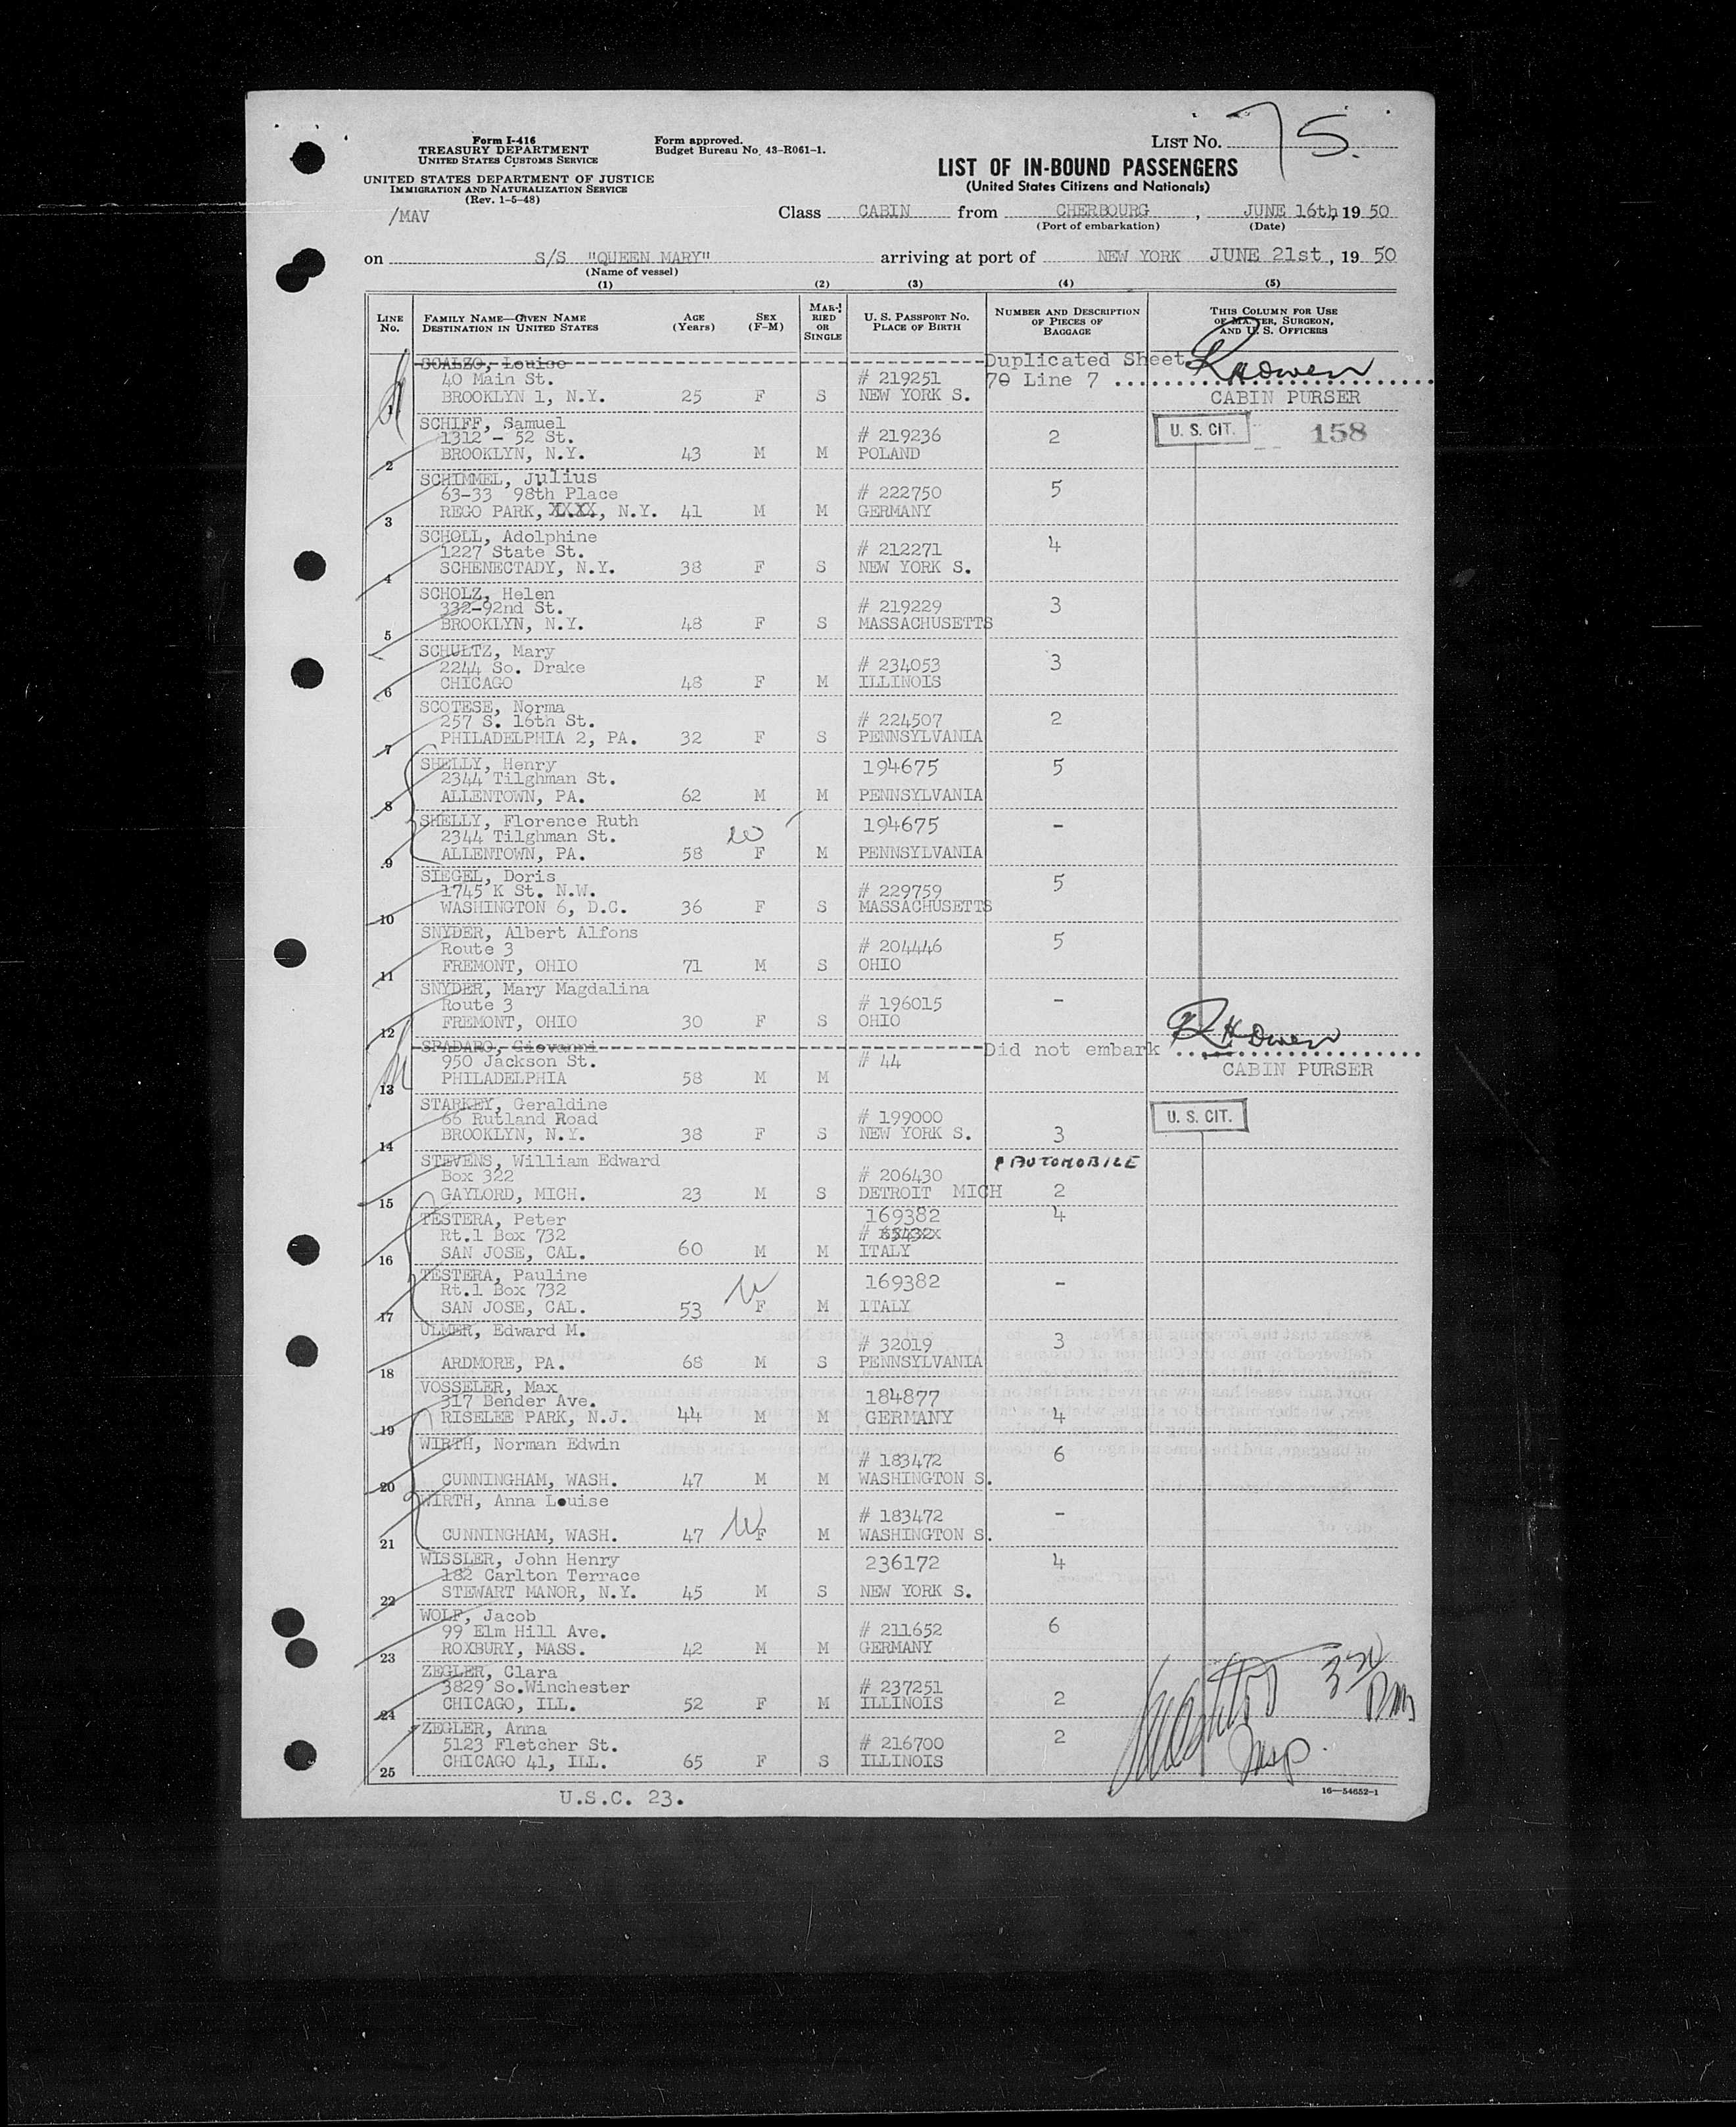 Form I-416
TREASURY DEPARTMENT
UNITED STATES CUSTOMS SERVICE
UNITED STATES DEPARTMENT OF JUSTICE
IMMIGRATION AND NATURALIZATION SERVICE
(Rev. 1-5-48)
/MAV
Form approved.
Budget Bureau No. 43-R061-1.
LIST No. 75.
LIST OF IN-BOUND PASSENGERS
(United States Citizens and Nationals)
Class CABIN from CHERBOURG, JUNE 16th, 1950
(Port of embarkation) (Date)
on S/S "QUEEN MARY" arriving at port of NEW YORK JUNE 21st, 1950
(Name of vessel)
(1) (2) (3) (4) (5)
LINE No. FAMILY NAME—GIVEN NAME DESTINATION IN UNITED STATES AGE (Years) SEX (F-M) MARRIED OR SINGLE U. S. PASSPORT No. PLACE OF BIRTH NUMBER AND DESCRIPTION OF PIECES OF BAGGAGE THIS COLUMN FOR USE OF MASTER, SURGEON, AND U. S. OFFICERS
SCALZO, Louise Duplicated Sheet RHOwen
40 Main St. # 219251 70 Line 7
1 BROOKLYN 1, N.Y. 25 F S NEW YORK S. CABIN PURSER
SCHIFF, Samuel U. S. CIT. 158
1312 - 52 St. # 219236 2
2 BROOKLYN, N.Y. 43 M M POLAND
SCHIMMEL, Julius
63-33 98th Place # 222750 5
3 REGO PARK, XXXX, N.Y. 41 M M GERMANY
SCHOLL, Adolphine
1227 State St. # 212271 4
4 SCHENECTADY, N.Y. 38 F S NEW YORK S.
SCHOLZ, Helen
332-92nd St. # 219229 3
5 BROOKLYN, N.Y. 48 F S MASSACHUSETTS
SCHULTZ, Mary
2244 So. Drake # 234053 3
6 CHICAGO 48 F M ILLINOIS
SCOTESE, Norma
257 S. 16th St. # 224507 2
7 PHILADELPHIA 2, PA. 32 F S PENNSYLVANIA
SHELLY, Henry 194675 5
2344 Tilghman St.
8 ALLENTOWN, PA. 62 M M PENNSYLVANIA
SHELLY, Florence Ruth 194675 -
2344 Tilghman St. w
9 ALLENTOWN, PA. 58 F M PENNSYLVANIA
SIEGEL, Doris
1745 K St. N.W. # 229759 5
10 WASHINGTON 6, D.C. 36 F S MASSACHUSETTS
SNYDER, Albert Alfons
Route 3 # 204446 5
11 FREMONT, OHIO 71 M S OHIO
SNYDER, Mary Magdalina
Route 3 # 196015 -
12 FREMONT, OHIO 30 F S OHIO
SPADARO, Giovanni Did not embark RHOwen
950 Jackson St. # 44
13 PHILADELPHIA 58 M M CABIN PURSER
STARKEY, Geraldine
66 Rutland Road # 199000 U. S. CIT.
14 BROOKLYN, N.Y. 38 F S NEW YORK S. 3
STEVENS, William Edward 1 AUTOMOBILE
Box 322 # 206430
15 GAYLORD, MICH. 23 M S DETROIT MICH 2
TESTERA, Peter 169382 4
Rt.1 Box 732
16 SAN JOSE, CAL. 60 M M ITALY
TESTERA, Pauline 169382 -
Rt.1 Box 732 w
17 SAN JOSE, CAL. 53 F M ITALY
ULMER, Edward M.
# 32019 3
18 ARDMORE, PA. 68 M S PENNSYLVANIA
VOSSELER, Max
317 Bender Ave. 184877
19 RISELEE PARK, N.J. 44 M M GERMANY 4
WIRTH, Norman Edwin
# 183472 6
20 CUNNINGHAM, WASH. 47 M M WASHINGTON S.
WIRTH, Anna Louise
# 183472 -
21 CUNNINGHAM, WASH. 47 w F M WASHINGTON S.
WISSLER, John Henry 236172 4
182 Carlton Terrace
22 STEWART MANOR, N.Y. 45 M S NEW YORK S.
WOLF, Jacob
99 Elm Hill Ave. # 211652 6
23 ROXBURY, MASS. 42 M M GERMANY
ZEGLER, Clara
3829 So.Winchester # 237251
24 CHICAGO, ILL. 52 F M ILLINOIS 2
ZEGLER, Anna
5123 Fletcher St. # 216700 2
25 CHICAGO 41, ILL. 65 F S ILLINOIS
Insp.
U.S.C. 23.
16—54652-1